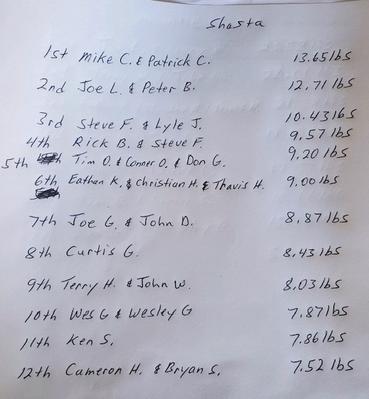 Shasta
1st Mike C. & Patrick C. 13.65 lbs
2nd Joe L. & Peter B. 12.71 lbs
3rd Steve F. & Lyle J. 10.43 lbs
4th Rick B. & Steve F. 9.57 lbs
5th Tim O. & Conner O. & Don G. 9.20 lbs
6th Eathan K. & Christian H. & Thavis H. 9.00 lbs
7th Joe G. & John D. 8.87 lbs
8th Curtis G. 8.43 lbs
9th Terry H. & John W. 8.03 lbs
10th Wes G & Wesley G 7.87 lbs
11th Ken S. 7.86 lbs
12th Cameron H. & Bryan S. 7.52 lbs